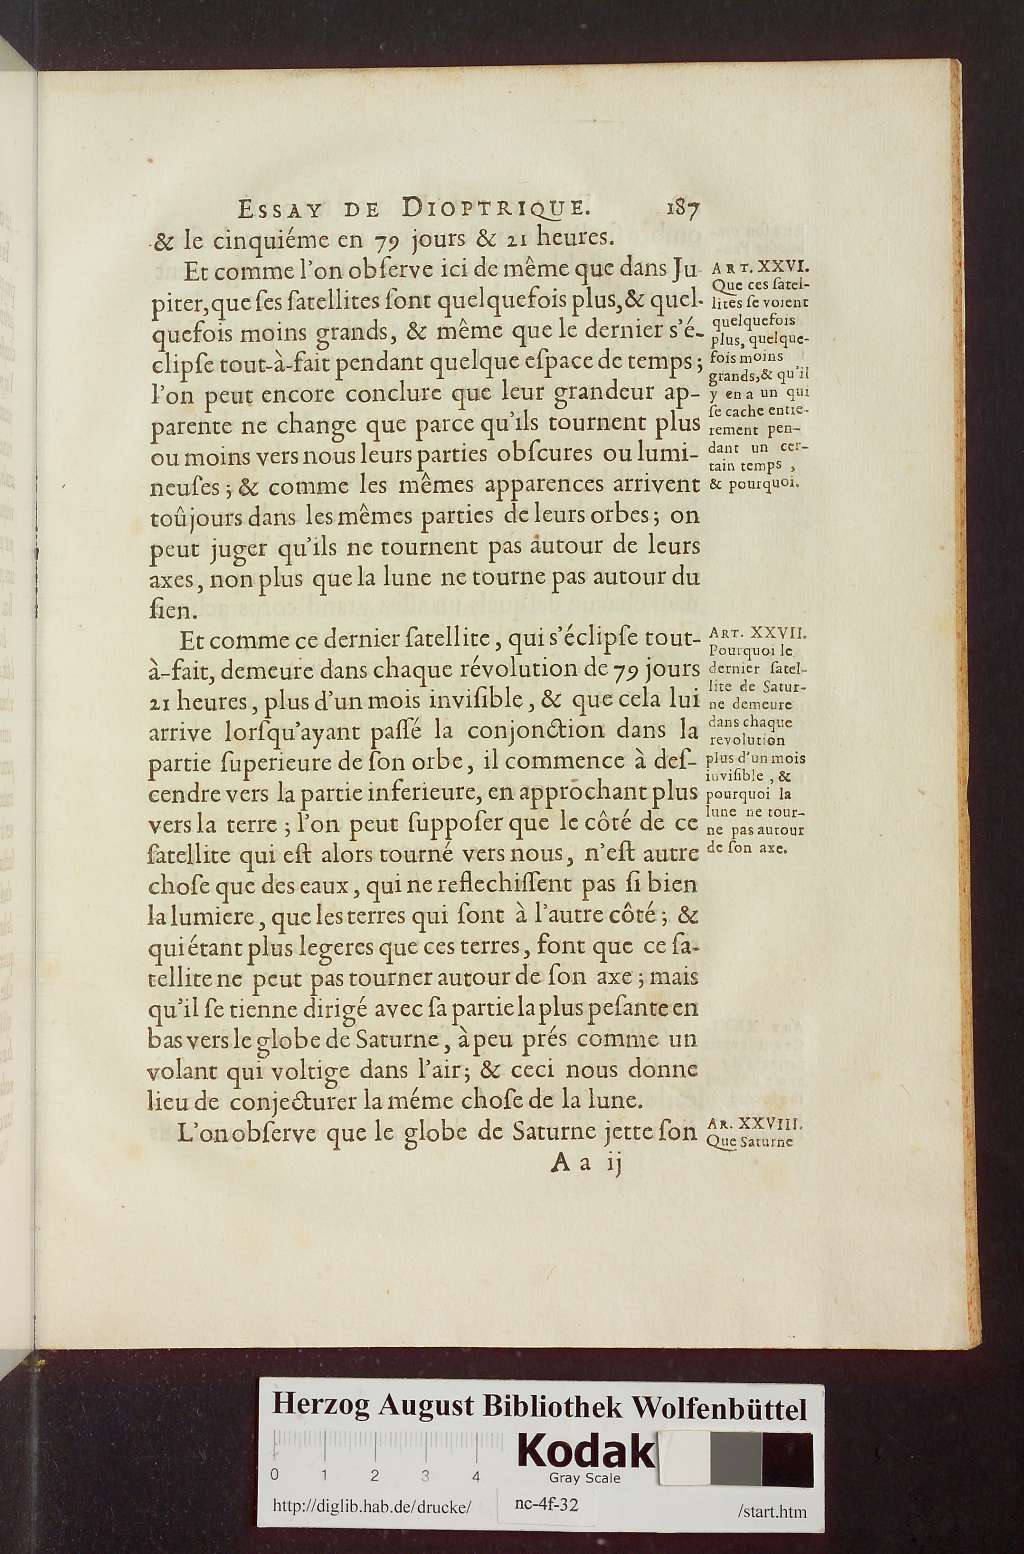 ESSAY DE DIOPTRIQUE. 187
& le cinquiéme en 79 jours & 21 heures.
Et comme l'on obſerve ici de même que dans Ju
piter, que ſes ſatellites ſont quelquefois plus, & quel-
quefois moins grands, & même que le dernier s'é-
clipſe tout-à-fait pendant quelque eſpace de temps;
l'on peut encore conclure que leur grandeur ap-
parente ne change que parce qu'ils tournent plus
ou moins vers nous leurs parties obſcures ou lumi-
neuſes; & comme les mêmes apparences arrivent
toûjours dans les mêmes parties de leurs orbes; on
peut juger qu'ils ne tournent pas autour de leurs
axes, non plus que la lune ne tourne pas autour du
ſien.
ART. XXVI.
Que ces ſatel-
lites ſe voient
quelquefois
plus, quelque-
fois moins
grands, & qu'il
y en a un qui
ſe cache entie-
rement pen-
dant un cer-
tain temps,
& pourquoi.
Et comme ce dernier ſatellite, qui s'éclipſe tout-
à-fait, demeure dans chaque révolution de 79 jours
21 heures, plus d'un mois inviſible, & que cela lui
arrive lorſqu'ayant paſſé la conjonction dans la
partie ſuperieure de ſon orbe, il commence à deſ-
cendre vers la partie inferieure, en approchant plus
vers la terre; l'on peut ſuppoſer que le côté de ce
ſatellite qui eſt alors tourné vers nous, n'eſt autre
choſe que des eaux, qui ne reflechiſſent pas ſi bien
la lumiere, que les terres qui ſont à l'autre côté; &
qui étant plus legeres que ces terres, font que ce ſa-
tellite ne peut pas tourner autour de ſon axe; mais
qu'il ſe tienne dirigé avec ſa partie la plus peſante en
bas vers le globe de Saturne, à peu prés comme un
volant qui voltige dans l'air; & ceci nous donne
lieu de conjecturer la méme choſe de la lune.
ART. XXVII.
Pourquoi le
dernier ſatel-
lite de Satur-
ne demeure
dans chaque
revolution
plus d'un mois
inviſible, &
pourquoi la
lune ne tour-
ne pas autour
de ſon axe.
L'on obſerve que le globe de Saturne jette ſon
AR. XXVIII.
Que Saturne
A a ij
Herzog August Bibliothek Wolfenbüttel
0 1 2 3 4
Kodak
Gray Scale
http://diglib.hab.de/drucke/ nc-4f-32 /start.htm